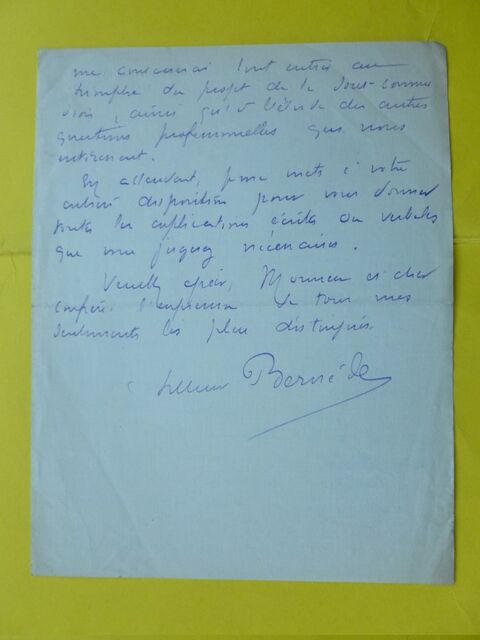 me consacrerai tout entier au
triomphe du projet de la sous-commis
sion, ainsi qu'à l'étude des autres
questions professionnelles qui nous
intéressent.
En attendant, je me mets à votre
entière disposition pour vous donner
toutes les explications écrites ou verbales
que vous jugerez nécessaires.
Veuillez agréer, Monsieur et cher
confrère l'expression de tous mes
sentiments les plus distingués.
Bernède